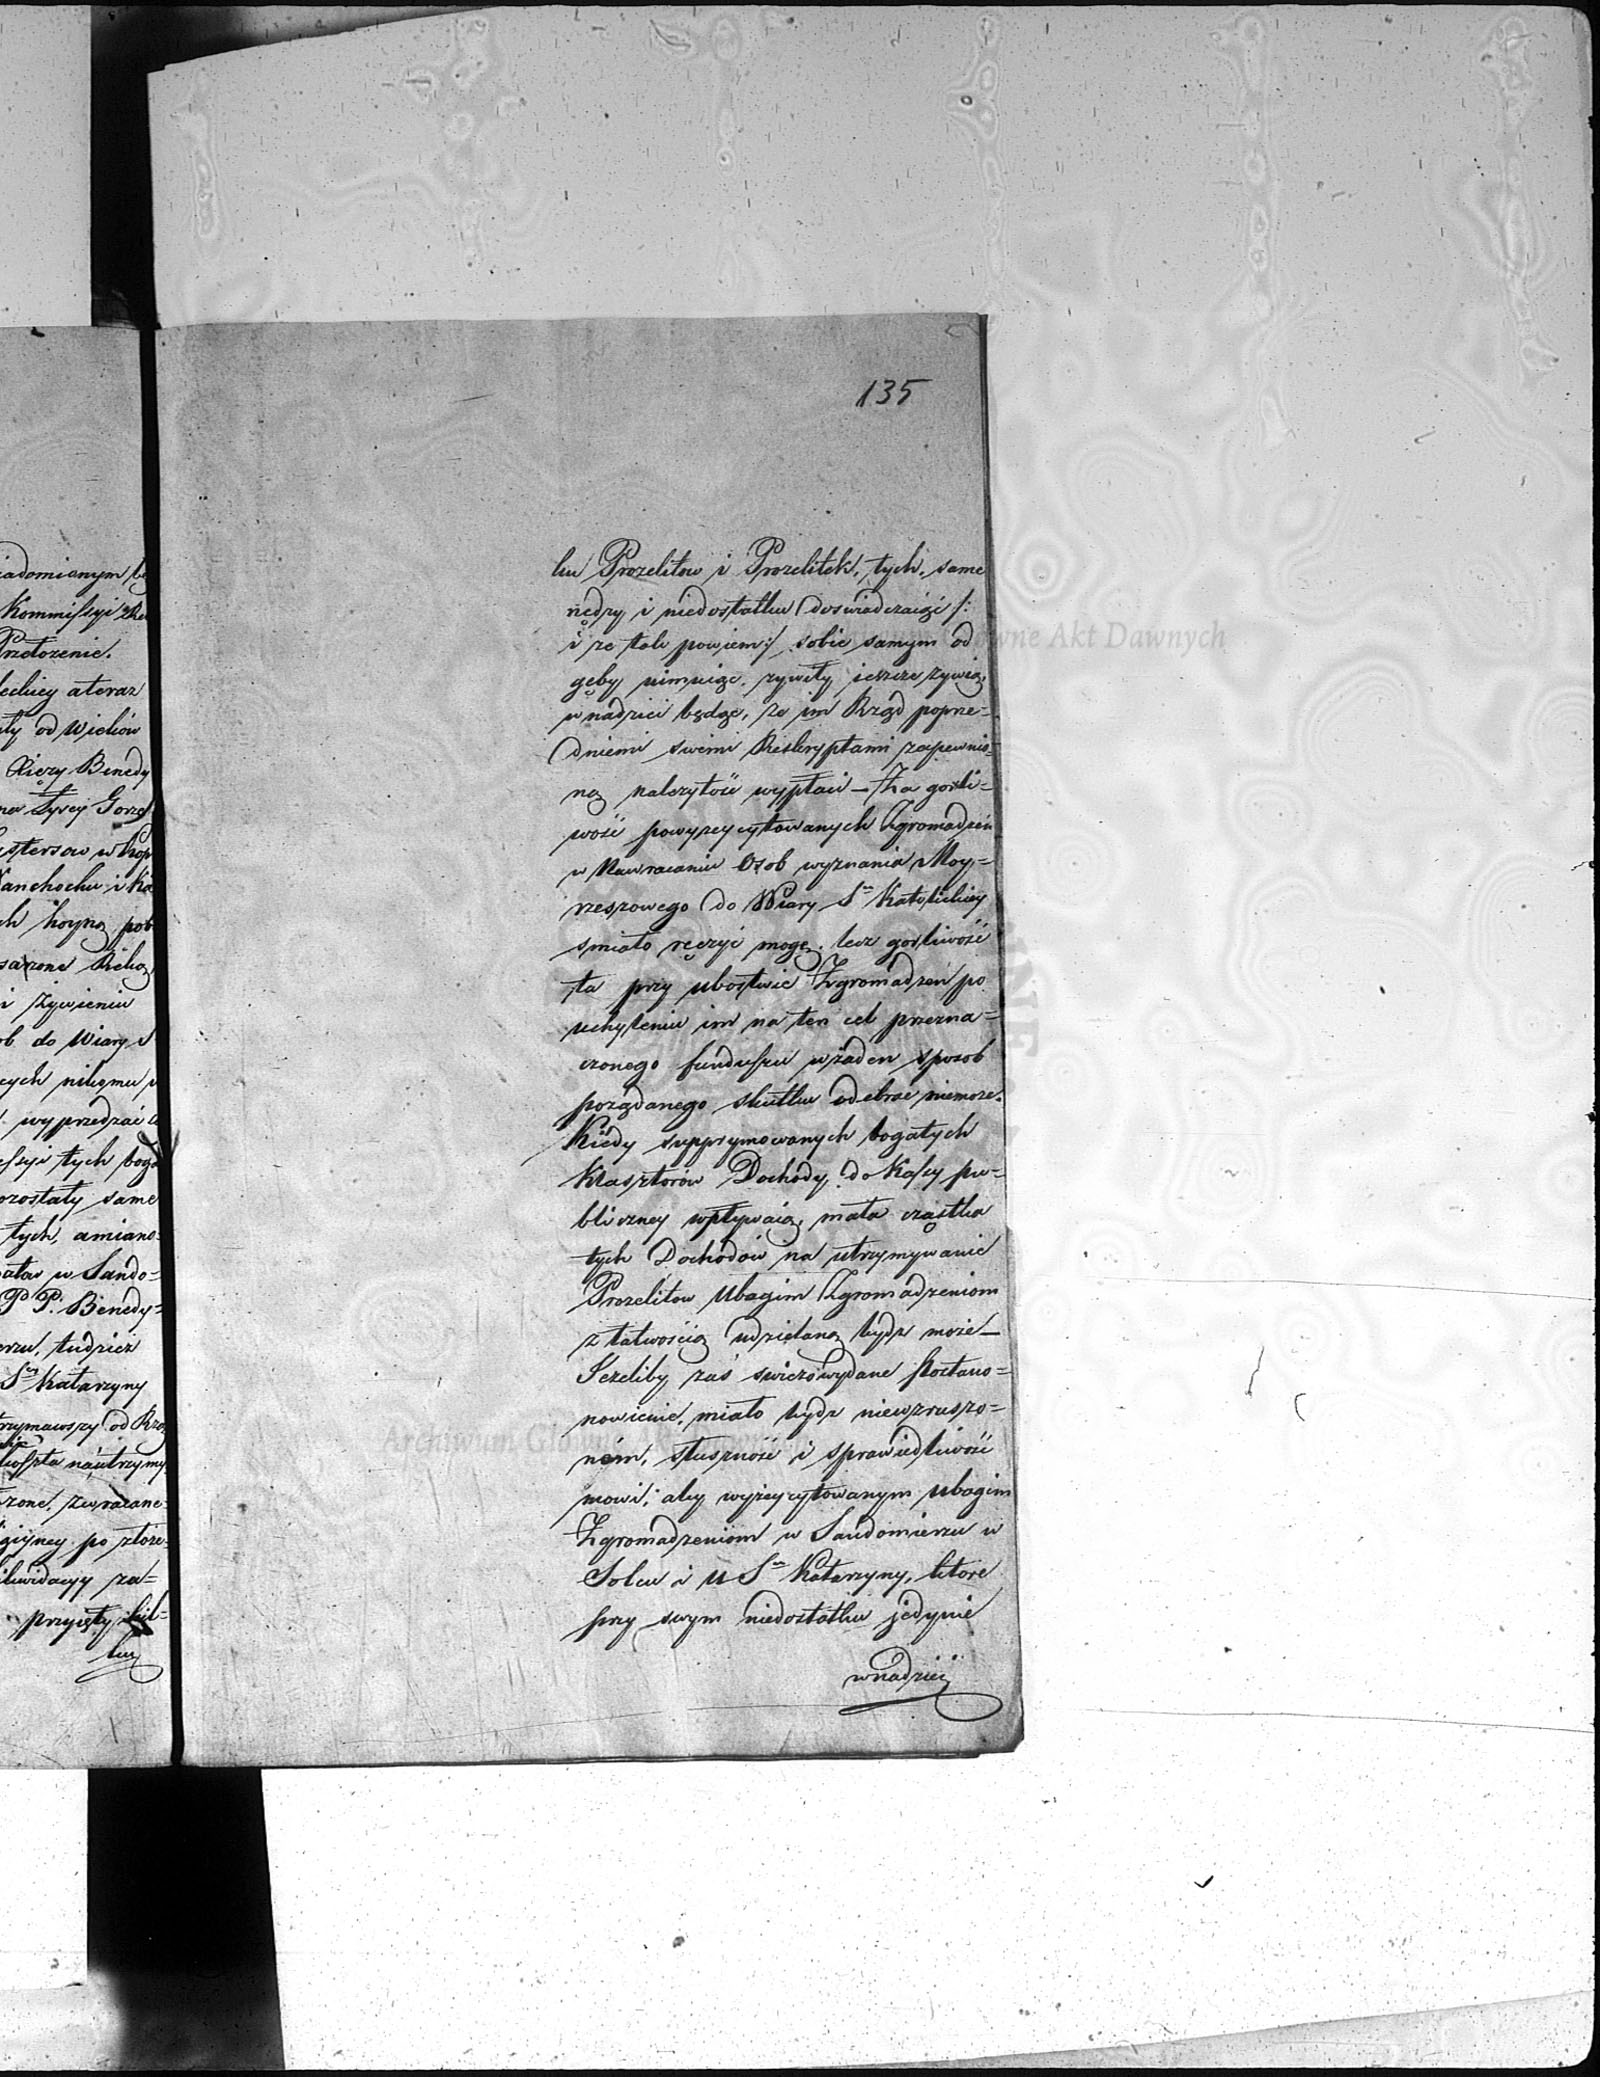 iadomionym
Kommissyi
Przełożenie.
leckiey a teraz
od Wieków
Xięży Benedy
na Łysey Gorze
Cystersow w Kop
anchocku i
ch hoyną pob
i Żywieniu
ob do Wiary S
cych nikomu
wyprzedzać
essyi tych boga
ozostały same
tych, a miano=
w Sando=
P P. Benedy=
erzu, tudziez
Sⁿ Katarzyny
trzymawszy od Rzą
na utrzymy
zone, zwracane
giyney po złoże=
likwidacyy za=
przyięty kil=
ku
135
ku Prozelitow i Prozelitek, tych, same
nędzy i niedostatku doswiadczaiąć /:
i ze tak powiem :/ sobie samym od
gęby uimuiąc, zywiły ieszcze zywią,
w nadziei będąc, że im Rząd poprze=
dniemi swemi Reskryptami zapewnio=
ną należytość wypłaci — Za gorli=
wość powyzey cytowanych Zgromadzeń
w Nawracaniu Osob wyznania Moy=
zeszowego do Wiary Sⁿ Katolickiey
smiało ręczyć mogę. lecz gorliwość
ta przy ubostwie Zgromadzeń po
uchyleniu im na ten cel przezna=
czonego funduszu w żaden sposob
pożądanego skutku odebrać niemoże.
Kiedy supprymowanych bogatych
Klasztorów Dochody do Kassy pu=
bliczney wpływaią, mała cząstka
tych Dochodów na utrzymywanie
Prozelitow Ubogim Zgromadzeniom
z łatwością udzieloną bydź może —
Jezeliby zaś swieżo wydane Postano=
nowienie, miało bydz niewzruszo=
ném, słuszność i sprawiedliwość
mowi, aby wyżey cytowanym ubogim
Zgromadzeniom w Sandomierzu w
Solcu i u Sⁿ Katarzyny, ktore
przy swym niedostatku jedynie
w nadziei
Archiwum Główne Akt Dawnych